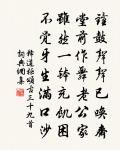 鼓聲聲已喚齋
堂前作舞老公家
雖然一缽充飢困
不覺牙生滿口沙
釋道樞頌古三十九首
詞典網集